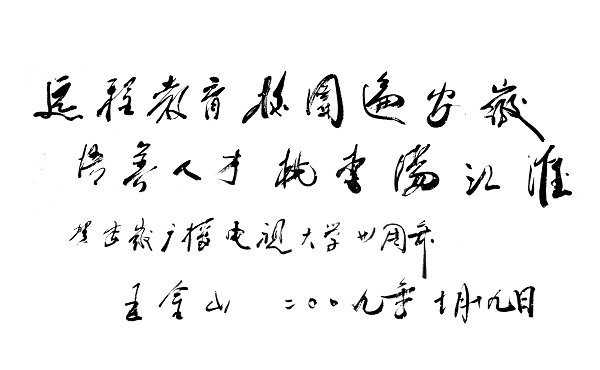 远程教育校園遍安徽
培养人才桃李满江淮
贺安徽广播电视大学卅周年
王金山 二〇〇九年十月十九日